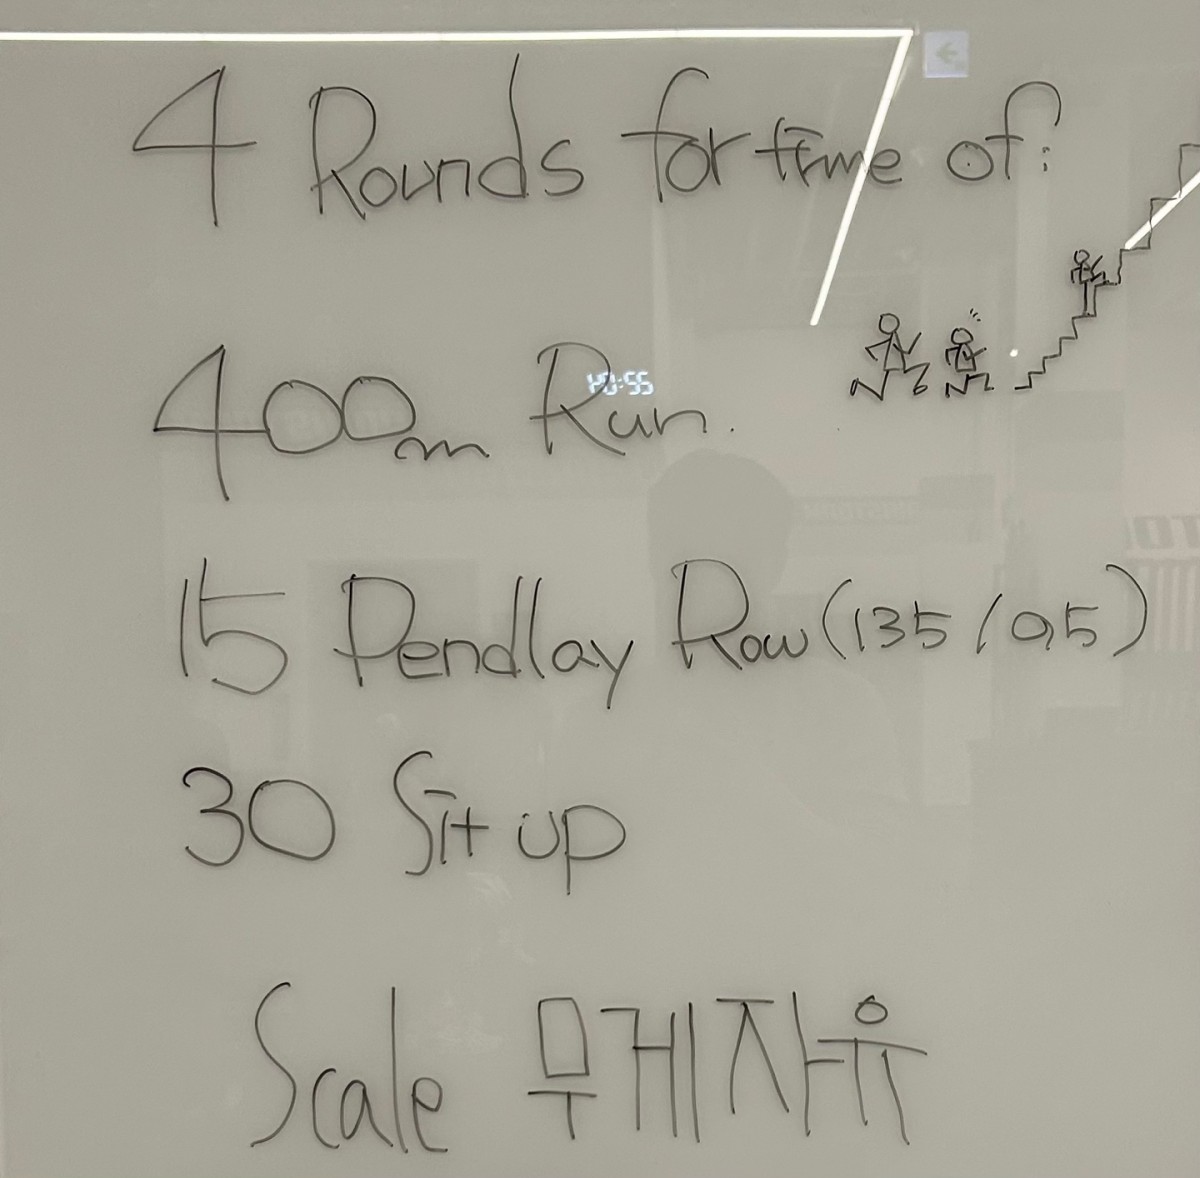 4 Rounds for time of:
400m Run.
15 Pendlay Row (135 / 95)
30 Sit up
Scale 무게자유